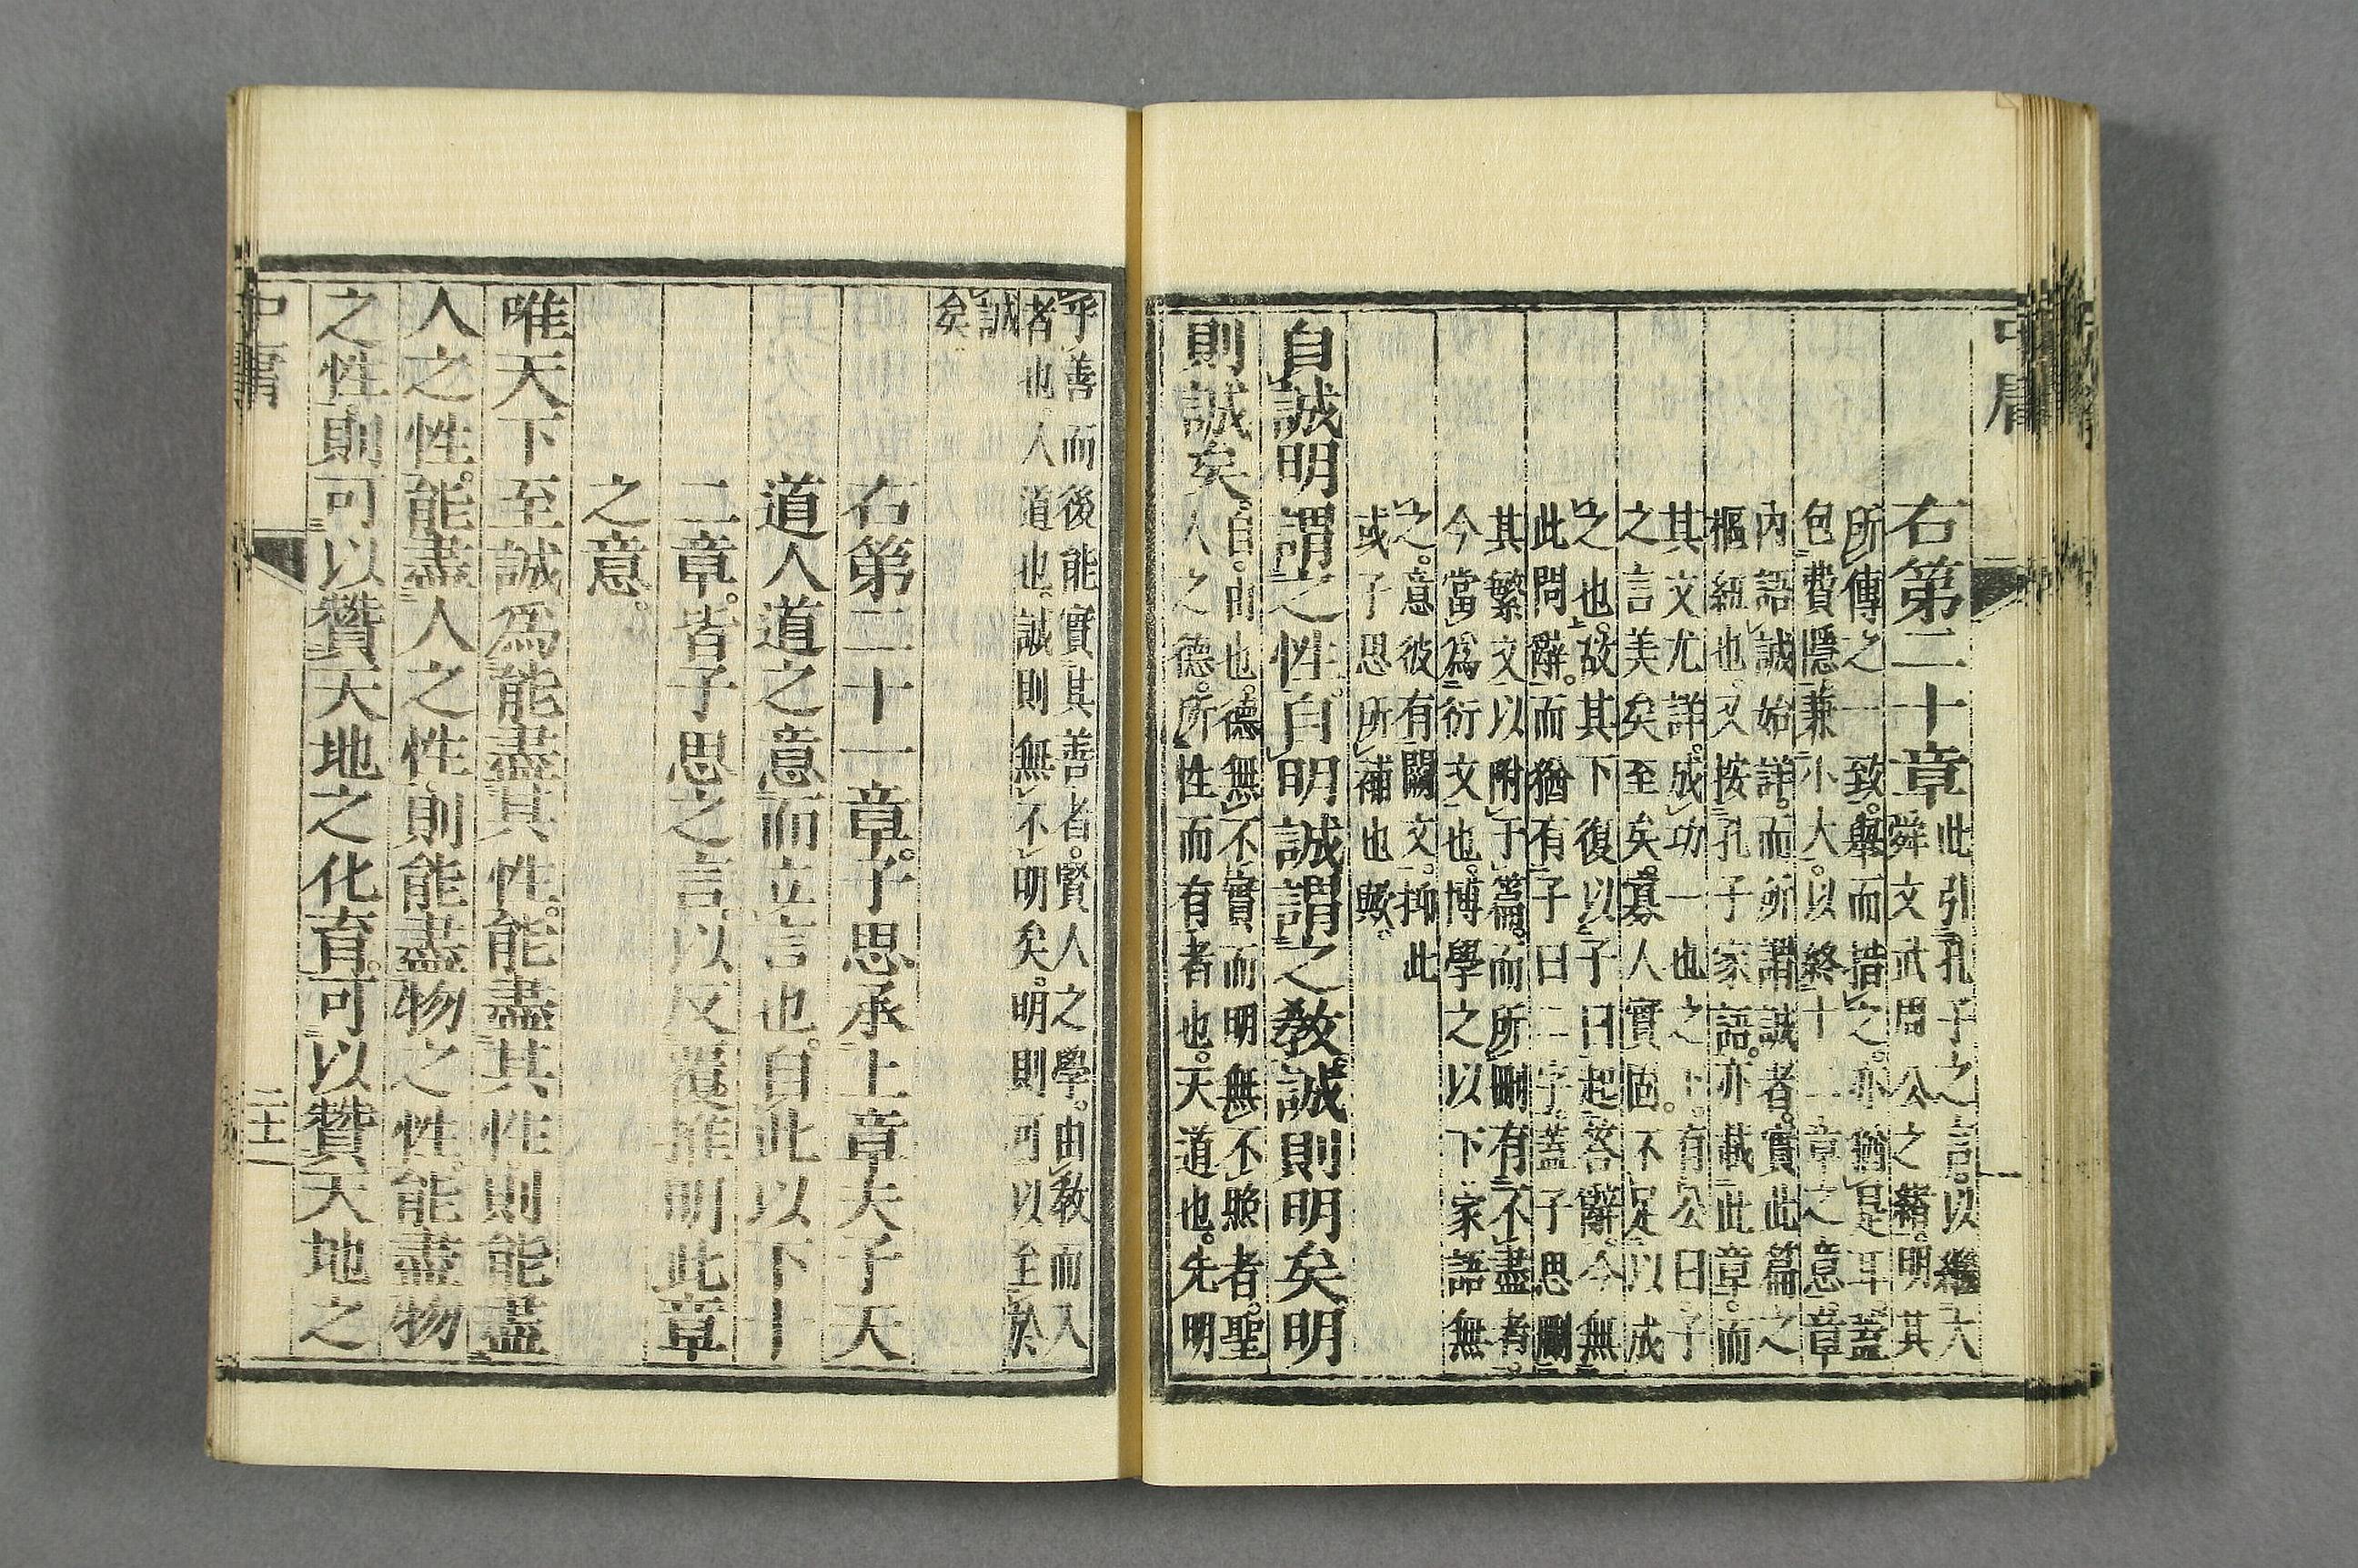 中庸
右第二十章此引孔子之言。以繼大
舜文武周公之緒。明其
所傳之一致。舉而措之。亦猶是耳。蓋
包費隱兼小大。以終十二章之意。章
內語誠始詳。而所謂誠者。實此篇之
樞紐也。又按孔子家語。亦載此章。而
其文尤詳。成功一也之下。有公曰。子
之言美矣至矣。寡人實固。不足以成
之也。故其下復以子曰起答辭。今無
此問辭。而猶有子曰二字。蓋子思刪
其繁文以附于篇。而所刪有不盡者。
今當爲衍文也。博學之以下家語無
之。意彼有闕文。抑此
或子思所補也歟。
自誠明謂之性。自明誠謂之教。誠則明矣。明
則誠矣。自。由也。德無不實而明無不照者。聖
人之德。所性而有者也。天道也。先明
乎善而後能實其善者。賢人之學。由教而入
者也。人道也。誠則無不明矣。明則可以至於
誠
矣
右第二十一章。子思承上章夫子天
道人道之意而立言也。自此以下十
二章。皆子思之言以反覆推明此章
之意。
唯天下至誠爲能盡其性。能盡其性則能盡
人之性。能盡人之性。則能盡物之性。能盡物
之性則可以贊天地之化育。可以贊天地之
中庸
二十一